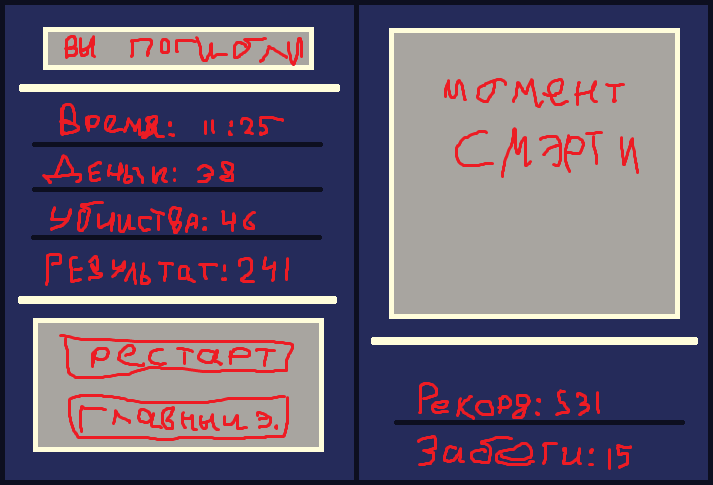 ВЫ ПОГИБЛИ
Время: 11:25
Деньги: 38
Убийства: 46
Результат: 241
рестарт
Главный э.
момент
смэрти
Рекорд: 531
Забеги: 15